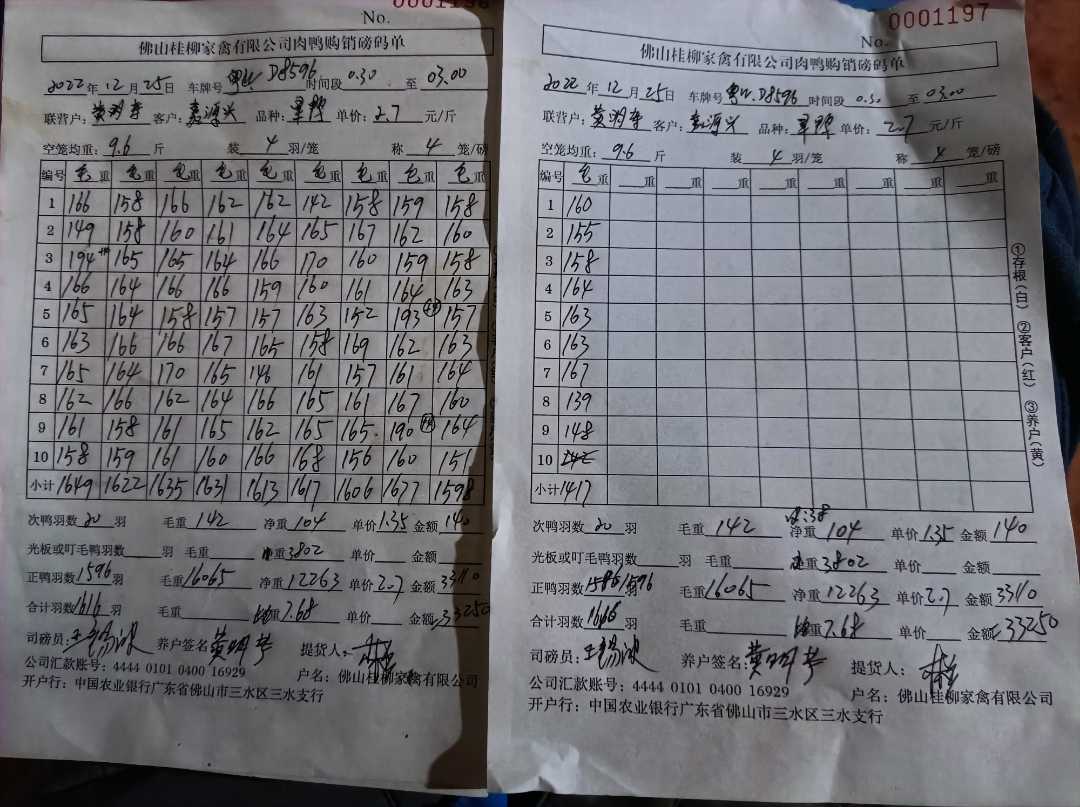 0001196
No.
佛山桂柳家禽有限公司肉鸭购销磅码单
2022年12月25日 车牌号 D8596 时间段 0.30 至 03.00
联营户： 客户： 品种： 单价：2.7 元/斤
空笼均重：9.6 斤 装 4 羽/笼 称 4 笼/磅
编号 毛重 毛重 毛重 毛重 毛重 毛重 毛重 毛重 毛重
1 166 158 166 162 162 142 158 159 158
2 149 158 160 161 164 165 167 162 160
3 194 165 165 164 166 170 160 159 158
4 166 164 166 166 159 160 161 164 163
5 165 164 158 157 157 163 152 193 157
6 163 166 166 167 165 158 169 162 163
7 165 164 170 165 146 161 157 161 164
8 162 166 162 164 166 165 161 167 160
9 161 158 161 165 162 165 165 190 164
10 158 159 161 160 166 168 156 160 151
小计 1649 1622 1635 1631 1613 1617 1606 1677 1598
次鸭羽数 20 羽 毛重 142 净重 104 单价 1.35 金额 140
光板或叮毛鸭羽数 羽 毛重 重 3802 单价 金额
正鸭羽数 1596 羽 毛重 16065 净重 12263 单价 2.7 金额 33110
合计羽数 1616 羽 毛重 均重 7.68 单价 金额 33250
司磅员： 养户签名： 提货人：
公司汇款账号：4444 0101 0400 16929 户名：佛山桂柳家禽有限公司
开户行：中国农业银行广东省佛山市三水区三水支行
0001197
No.
佛山桂柳家禽有限公司肉鸭购销磅码单
2022年12月25日 车牌号 D8596 时间段 0.30 至 03.00
联营户： 客户： 品种： 单价：2.7 元/斤
空笼均重：9.6 斤 装 4 羽/笼 称 4 笼/磅
编号 毛重 重 重 重 重 重 重 重 重
1 160
2 155
3 158
4 164
5 163
6 163
7 167
8 139
9 148
10
小计 1417
①存根（白） ②客户（红） ③养户（黄）
次鸭羽数 20 羽 毛重 142 净重 104 单价 1.35 金额 140
光板或叮毛鸭羽数 羽 毛重 重 3802 单价 金额
正鸭羽数 1596 羽 毛重 16065 净重 12263 单价 2.7 金额 33110
合计羽数 1616 羽 毛重 均重 7.68 单价 金额 33250
司磅员： 养户签名： 提货人：
公司汇款账号：4444 0101 0400 16929 户名：佛山桂柳家禽有限公司
开户行：中国农业银行广东省佛山市三水区三水支行